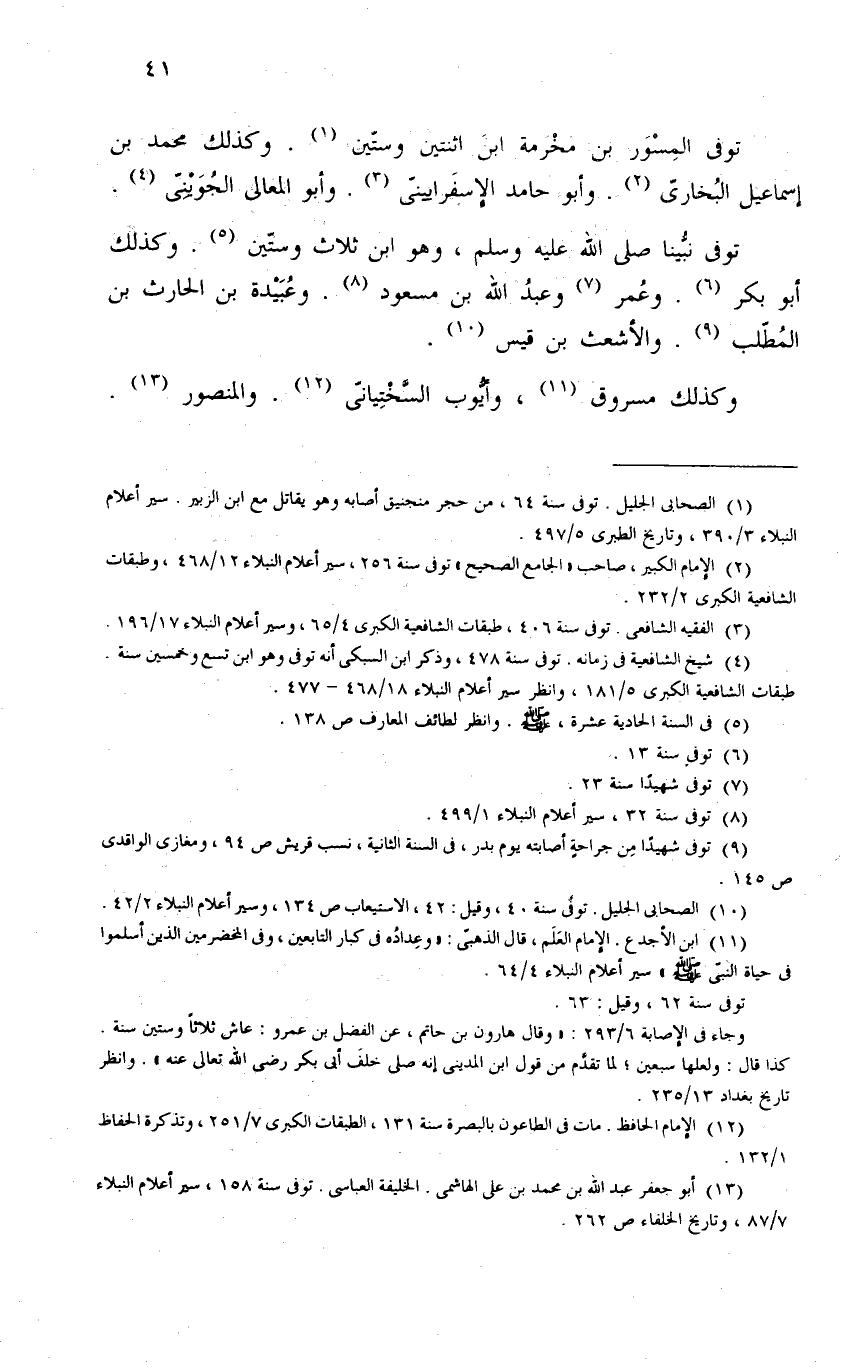 ٤١
توفى المِسْوَر بن مخْرمة ابنَ اثنتين وستّين (١) . وكذلك محمد بن
إسماعيل البُخارىّ (٢) . وأبو حامد الإسفَرايينىّ (٣) . وأبو المعالى الجُوَيْنِىّ (٤) .
توفى نبُّينا صلى الله عليه وسلم ، وهو ابن ثلاث وستّين (٥) . وكذلك
أبو بكر (٦) . وعُمر (٧) وعبدُ الله بن مسعود (٨) . وعُبَيْدة بن الحارث بن
المُطّلب (٩) . والأشعث بن قيس (١٠) .
وكذلك مسروق (١١) ، وأيُّوب السَّخْتِيانىّ (١٢) . والمنصور (١٣) .
(١) الصحابى الجليل . توفى سنة ٦٤ ، من حجر منجنيق أصابه وهو يقاتل مع ابن الزبير . سير أعلام
النبلاء ٣٩٠/٣ ، وتاريخ الطبرى ٤٩٧/٥ .
(٢) الإمام الكبير ، صاحب « الجامع الصحيح » توفى سنة ٢٥٦ ، سير أعلام النبلاء ٤٦٨/١٢ ، وطبقات
الشافعية الكبرى ٢٣٢/٢ .
(٣) الفقيه الشافعى . توفى سنة ٤٠٦ ، طبقات الشافعية الكبرى ٦٥/٤ ، وسير أعلام النبلاء ١٩٦/١٧ .
(٤) شيخ الشافعية فى زمانه . توفى سنة ٤٧٨ ، وذكر ابن السبكى أنه توفى وهو ابن تسع وخمسين سنة .
طبقات الشافعية الكبرى ١٨١/٥ ، وانظر سير أعلام النبلاء ٤٦٨/١٨ – ٤٧٧ .
(٥) فى السنة الحادية عشرة ، ﷺ . وانظر لطائف المعارف ص ١٣٨ .
(٦) توفى سنة ١٣ .
(٧) توفى شهيدًا سنة ٢٣ .
(٨) توفى سنة ٣٢ ، سير أعلام النبلاء ٤٩٩/١ .
(٩) توفى شهيدًا مِن جراحةٍ أصابته يوم بدر ، فى السنة الثانية ، نسب قريش ص ٩٤ ، ومغازى الواقدى
ص ١٤٥ .
(١٠) الصحابى الجليل . توفُى سنة ٤٠ ، وقيل : ٤٢ ، الاستيعاب ص ١٣٤ ، وسير أعلام النبلاء ٤٢/٢ .
(١١) ابن الأجدع . الإمام العَلَم ، قال الذهبىّ : « وعِدادُه فى كبار التابعين ، وفى المخضرمين الذين أسلموا
فى حياة النبىّ ﷺ » سير أعلام النبلاء ٦٤/٤ .
توفى سنة ٦٢ ، وقيل : ٦٣ .
وجاء فى الإصابة ٢٩٣/٦ : « وقال هارون بن حاتم ، عن الفضل بن عمرو : عاش ثلاثاً وستين سنة .
كذا قال : ولعلها سبعين ؛ لما تقدَّم من قول ابن المدينى إنه صلى خلفَ أبى بكر رضى الله تعالى عنه » . وانظر
تاريخ بغداد ٢٣٥/١٣ .
(١٢) الإمام الحافظ . مات فى الطاعون بالبصرة سنة ١٣١ ، الطبقات الكبرى ٢٥١/٧ ، وتذكرة الحفاظ
١٣٢/١ .
(١٣) أبو جعفر عبد الله بن محمد بن على الهاشمى . الخليفة العباسى . توفى سنة ١٥٨ ، سير أعلام النبلاء
٨٧/٧ ، وتاريخ الخلفاء ص ٢٦٢ .